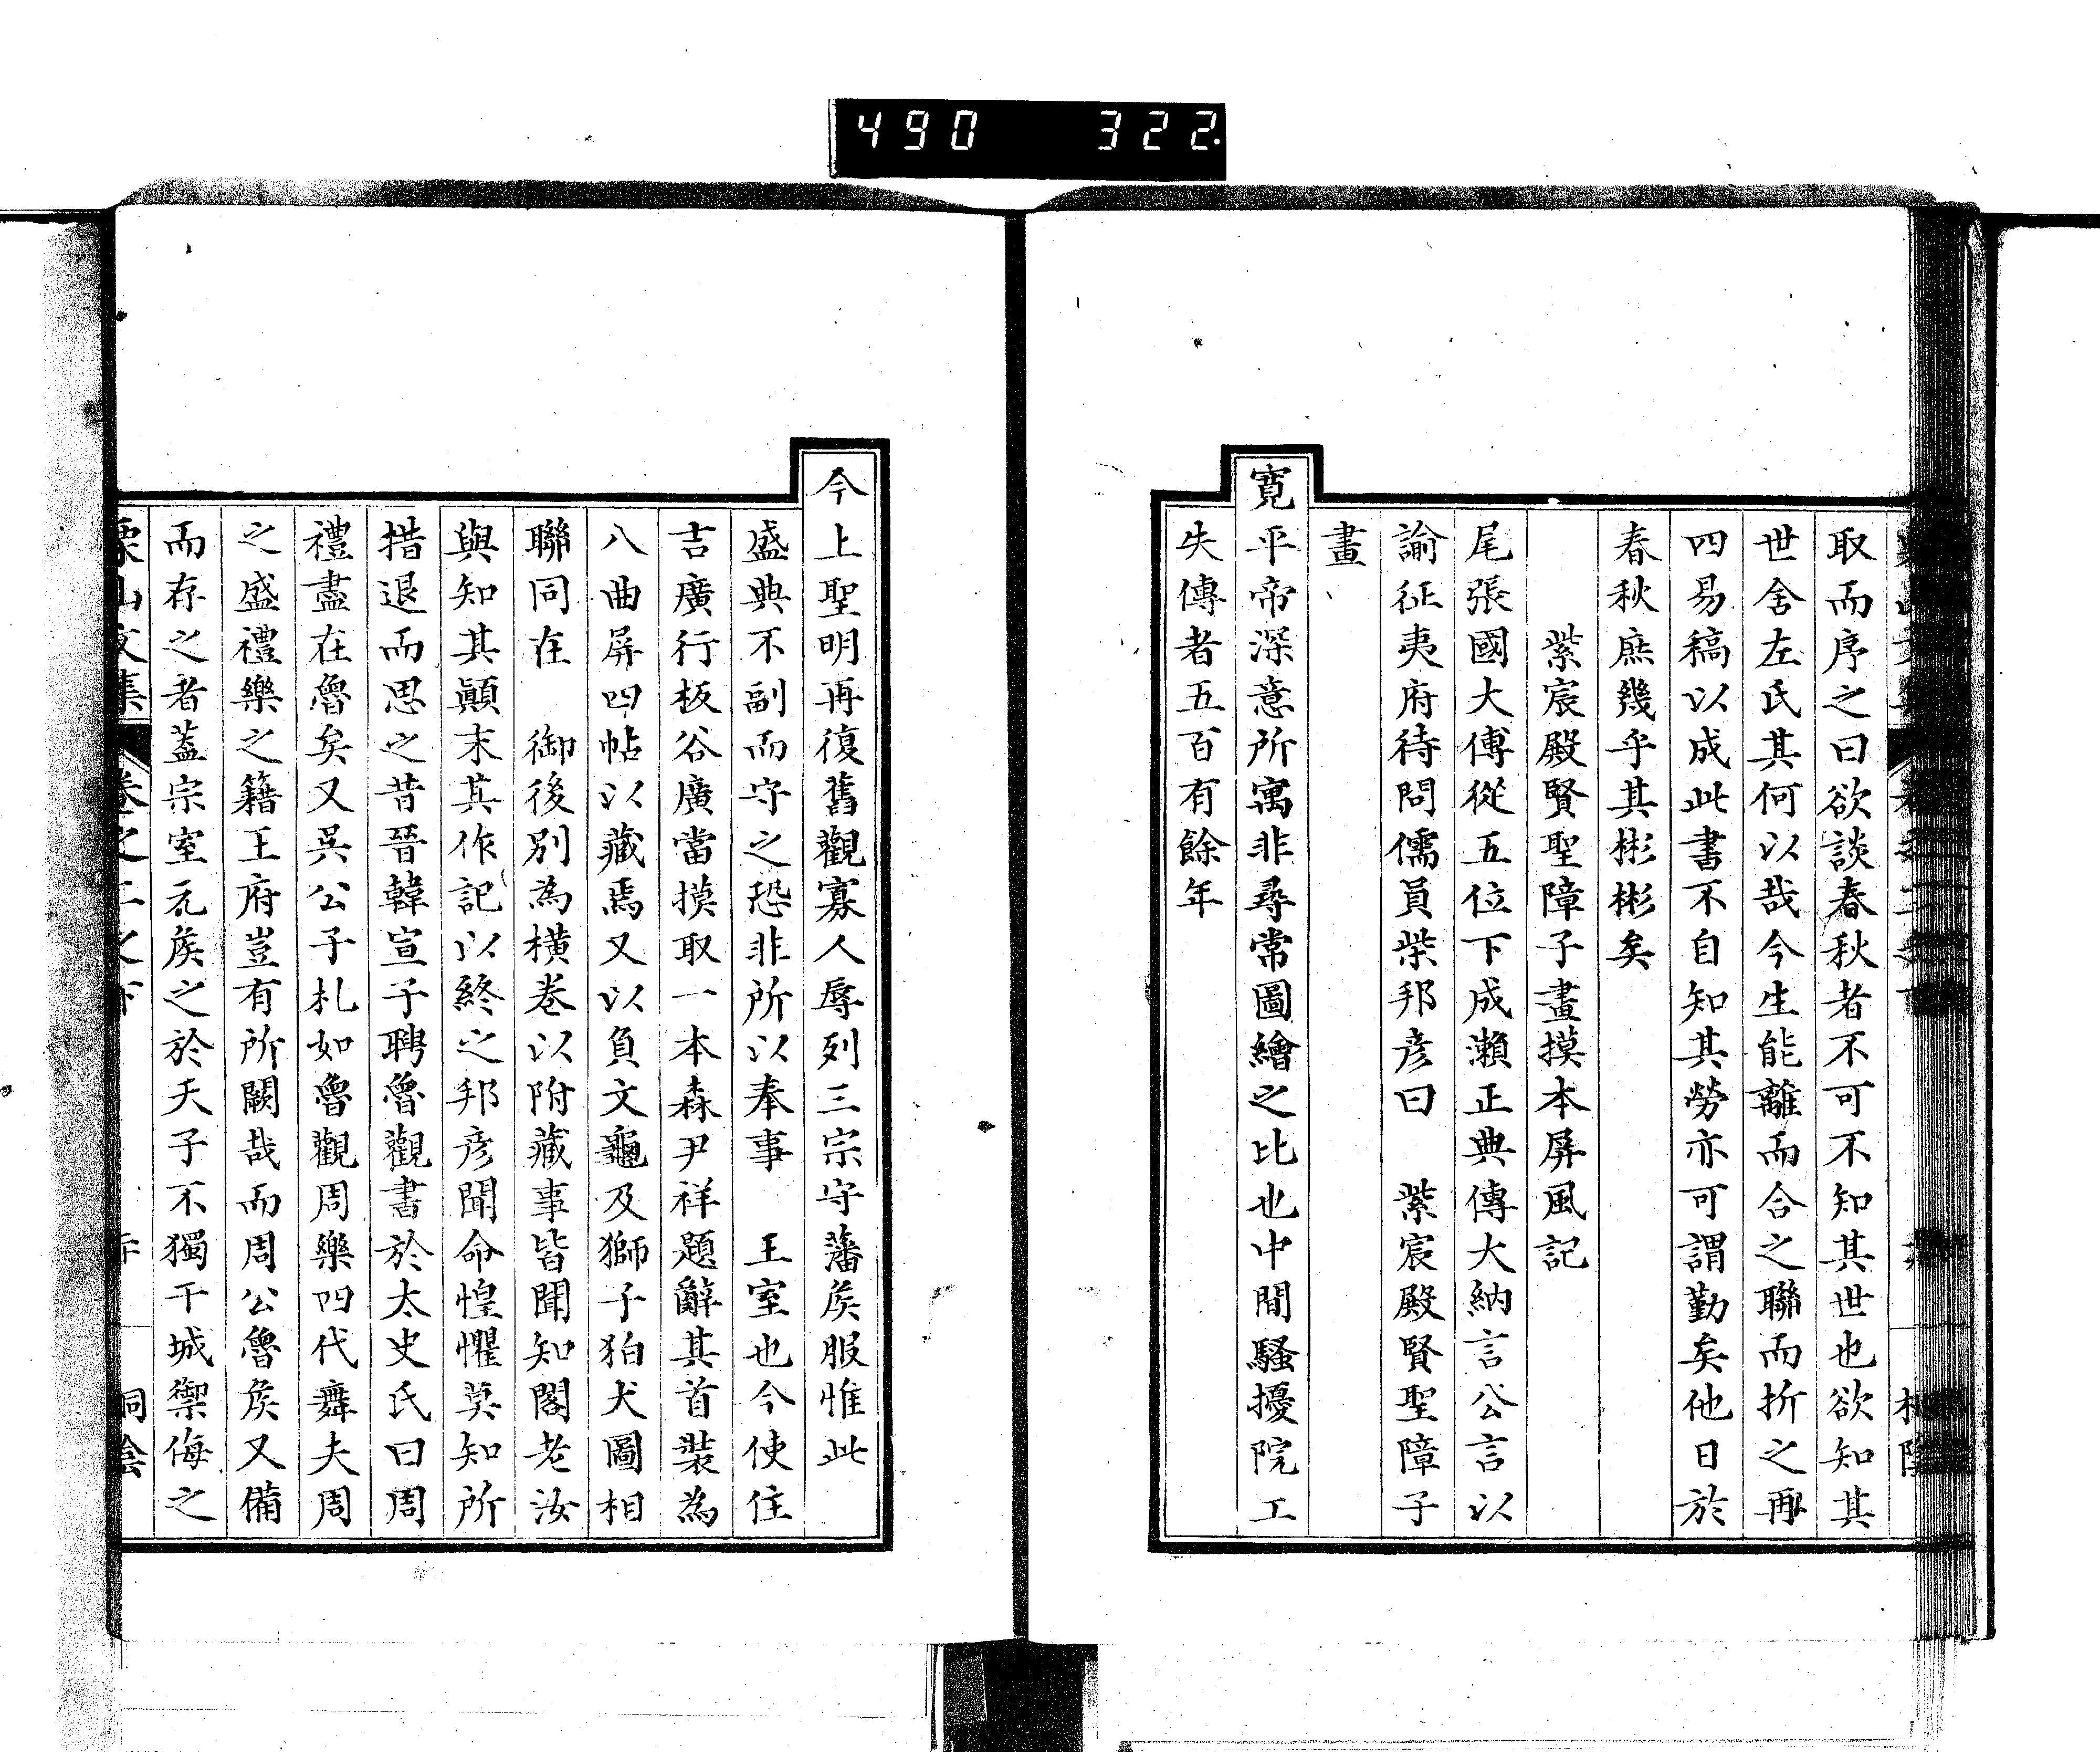 490 322.
取而序之曰欲談春秋者不可不知其世也欲知其
世舍左氏其何以哉今生能離而合之聯而折之再
四易稿以成此書不自知其勞亦可謂勤矣他日於
春秋庶幾乎其彬彬矣
紫宸殿賢聖障子畫摸本屏風記
尾張國大傅從五位下成瀨正典傳大納言公言以
諭征夷府待問儒員柴邦彦曰 紫宸殿賢聖障子
畫
寛平帝深意所寓非尋常圖繪之比也中間騷擾院工
失傳者五百有餘年
今上聖明再復舊觀寡人辱列三宗守藩矦服惟此
盛典不副而守之恐非所以奉事 王室也今使住
吉廣行板谷廣當摸取一本森尹祥題辭其首裝為
八曲屏四帖以藏焉又以負文龜及獅子狛犬圖相
聯同在 御後別為橫卷以附藏事皆聞知閣老汝
與知其顚末其作記以終之邦彦聞命惶懼莫知所
措退而思之昔晉韓宣子聘魯觀書於太史氏曰周
禮盡在魯矣又吳公子札如魯觀周樂四代舞夫周
之盛禮樂之籍王府豈有所闕哉而周公魯矦又備
而存之者蓋宗室元矦之於天子不獨干城禦侮之
栗山文集 卷之二之下 桐陰